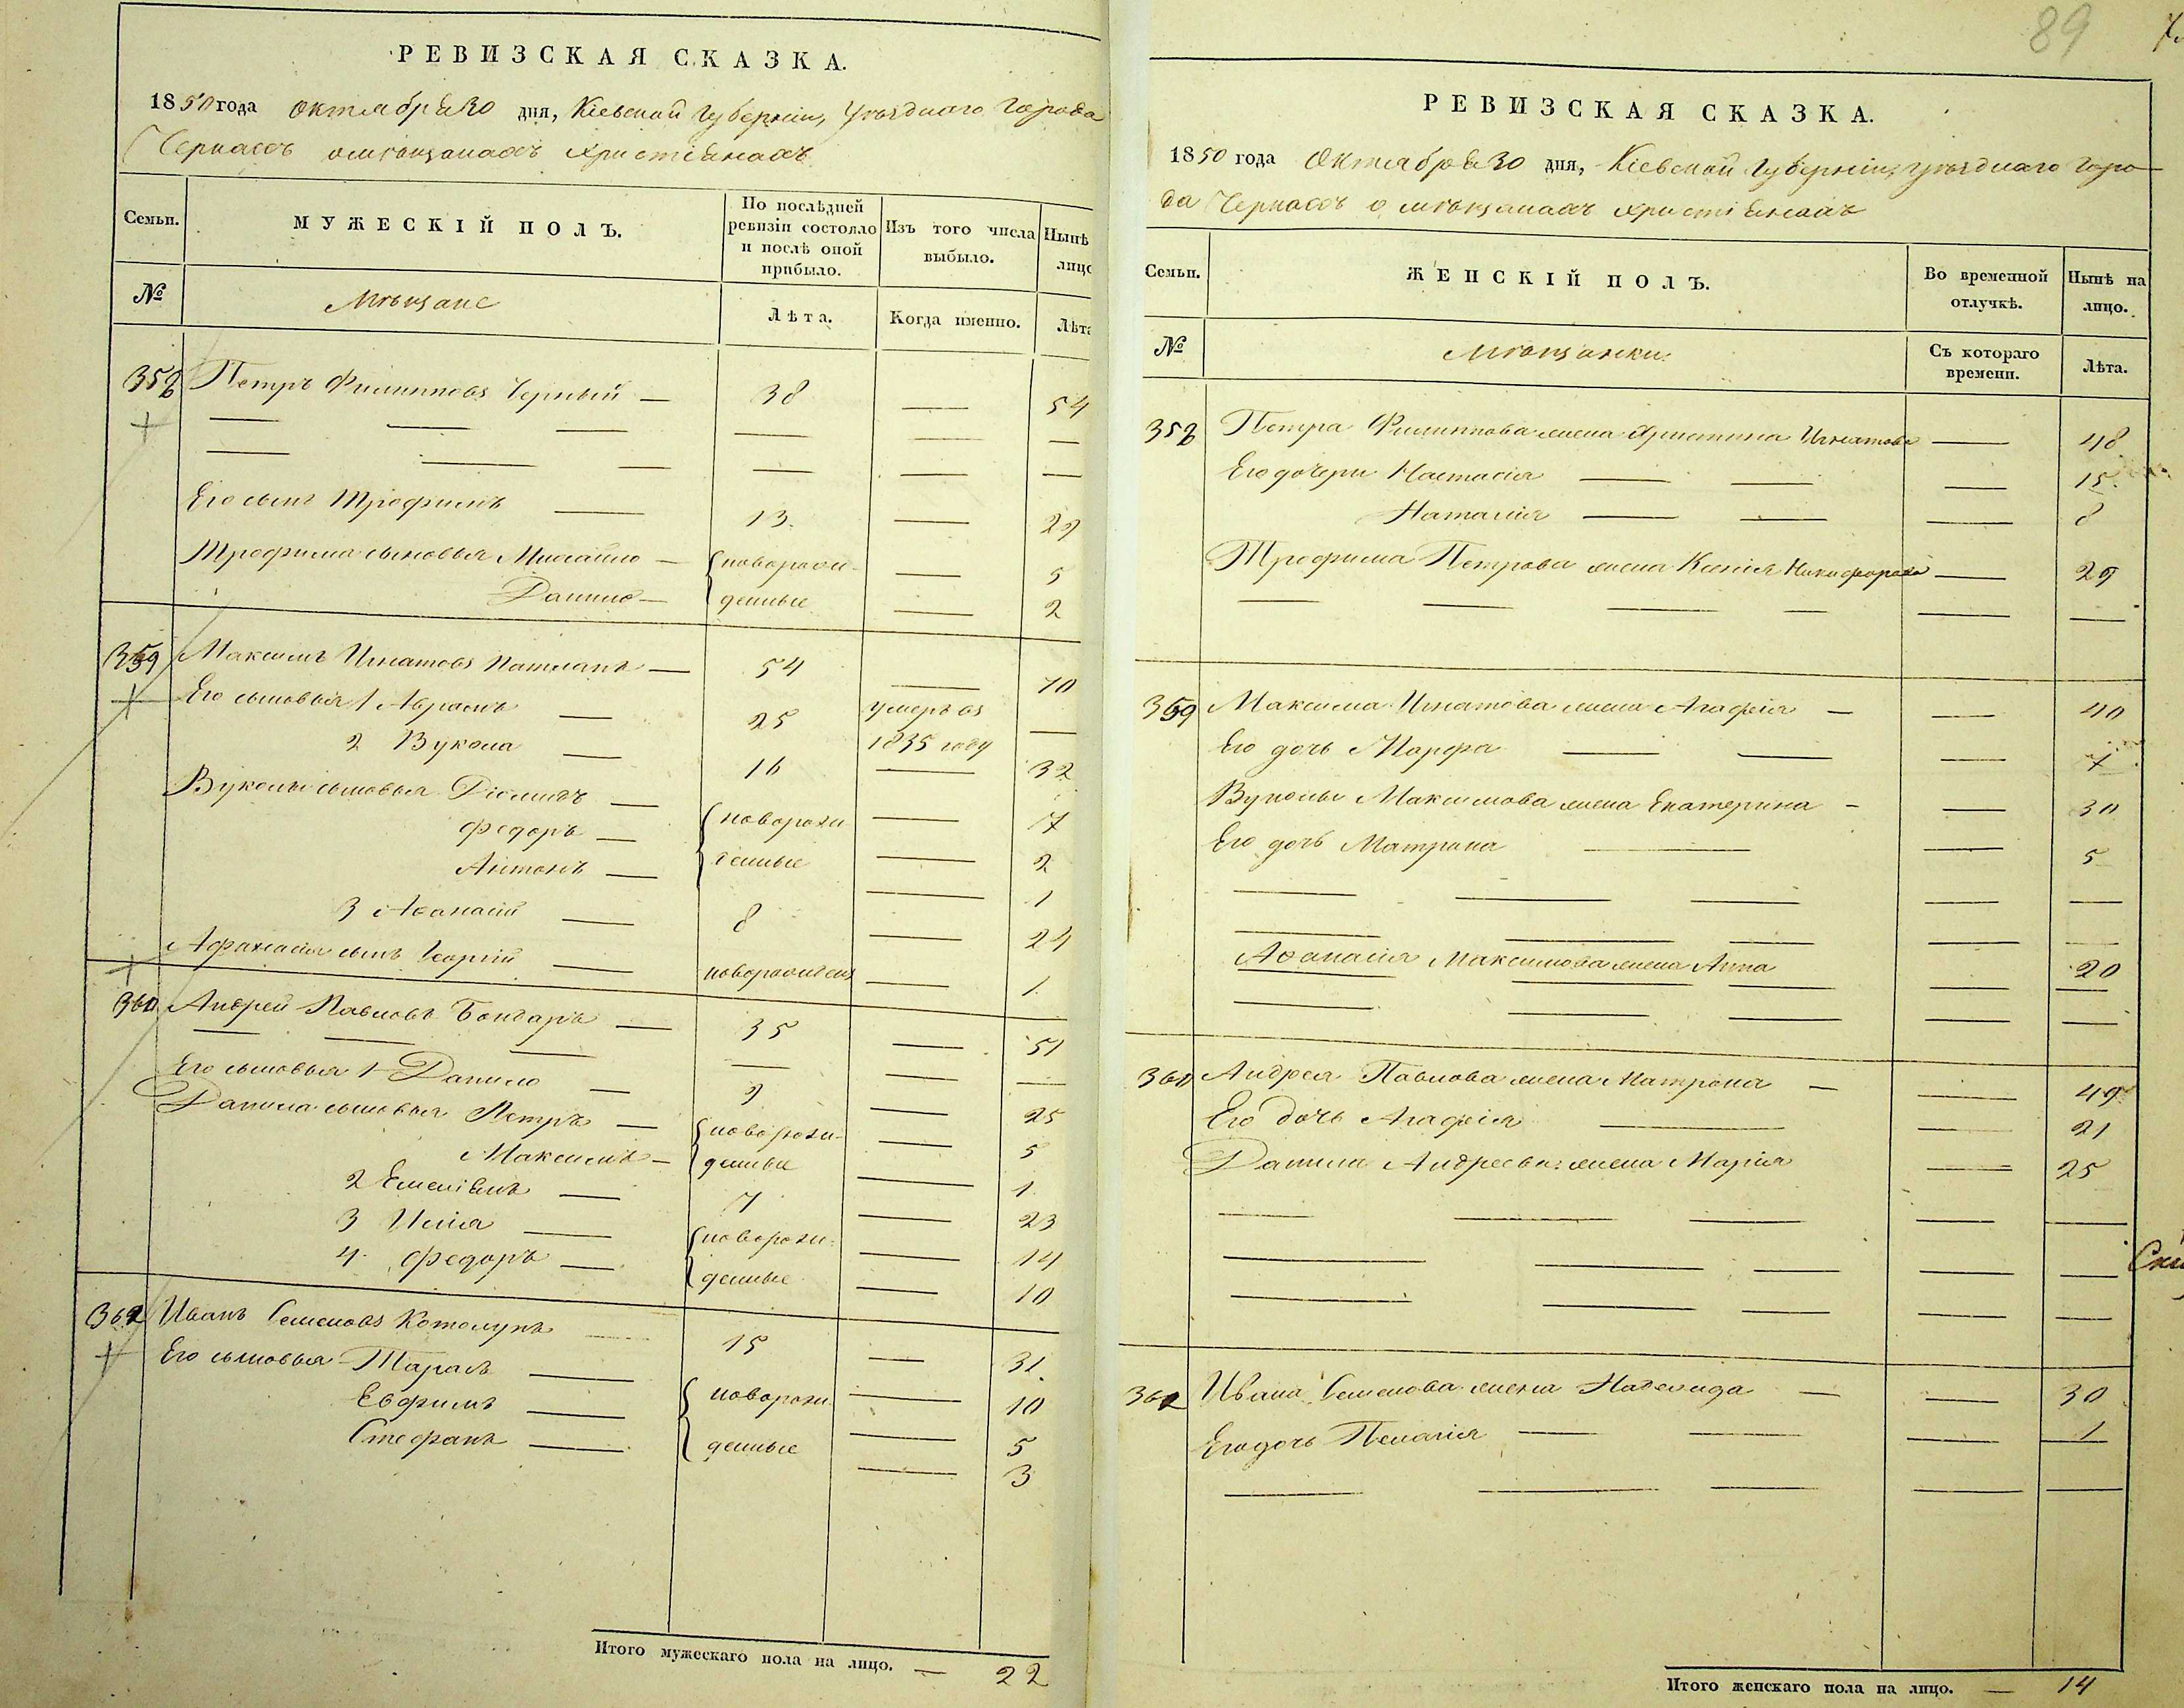 РЕВИЗСКАЯ СКАЗКА.
1850 года Октября 30 дня, Кіевской Губерніи, Уѣзднаго Города
Черкасъ о мѣщанахъ христіянахъ
Семьи.
МУЖЕСКІЙ ПОЛЪ.
По послѣдней ревизіи состояло и послѣ оной прибыло.
Изъ того числа выбыло.
Нынѣ лицо
№
Мѣщане
Лѣта.
Когда именно.
Лѣта
358 Петръ Филипповъ Черный — 38 — 54
Его сынъ Трофимъ — 13. — 29
Трофима сыновья Михайло — новорож- — 5
Данило — денные — 2
359 Максимъ Игнатовъ Патлань — 54 — 70
Его сыновья 1 Абрамъ — 25 умеръ въ —
1835 году
2 Вукола — 16 — 32
Вуколы сыновья Діомидъ — новорож — 7
Федоръ — денные — 2
Антонъ — — 1
3 Аѳанасій — 8 — 24
Афанасія сынъ Георгій — новорожденъ — 1
360 Андрей Павловъ Бондарь — 35 — 51
Его сыновья 1 Данило — 9 — 25
Данила сыновья Петръ — новорож- — 5
Максимъ — денные — 1
2 Емеліянъ — 7 — 23
3 Илія — новорож- — 14
4 Федоръ — денные — 10
362 Иванъ Семеновъ Котолупъ — 15 — 31.
Его сыновья Тарасъ — новорож — 10
Евфимъ — денные — 5
Стефанъ — — 3
Итого мужескаго пола на лицо. — 22
89
РЕВИЗСКАЯ СКАЗКА.
1850 года Октября 30 дня, Кіевской Губерніи, Уѣзднаго Горо-
да Черкасъ о мѣщанахъ христіянахъ
Семьи.
ЖЕНСКІЙ ПОЛЪ.
Во временной отлучкѣ.
Нынѣ на лицо.
№
Мѣщанки.
Съ котораго времени.
Лѣта.
358 Петра Филиппова жена Христина Игнатова — 48
Его дочери Настасія — — 15.
Наталія — — 8
Трофима Петрова жена Ксенія Никифорова — 29
359 Максима Игнатова жена Агафія — — 40
Его дочь Марфа — — 7
Вуколы Максимова жена Екатерина — — 30
Его дочь Матрона — — 5
Аѳанасія Максимова жена Анна — 20
360 Андрея Павлова жена Матрона — — 49
Его дочь Агафія — — 21
Данила Андреева жена Марія — 25
362 Ивана Семенова жена Надежда — — 30
Его дочь Пелагія — — 1
Итого женскаго пола на лицо. — 14